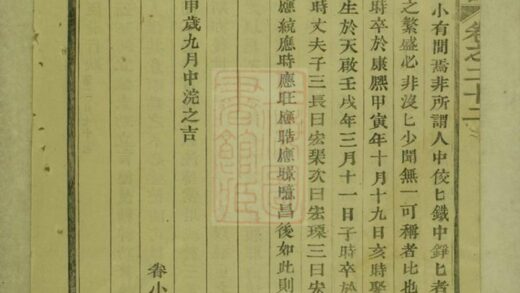 卷之二十二
小有間焉非所謂人中佼匕鐵中錚匕者
之繁盛必非沒匕少聞無一可稱者比也
時卒於康熙甲寅年十月十九日亥時聚
生於天啟壬戌年三月十一日子時卒於
時丈夫子三長曰宏琹次曰宏璨三曰宏
應統應時應旺應晧應 噫昌後如此則
甲歲九月中浣之吉
眷小